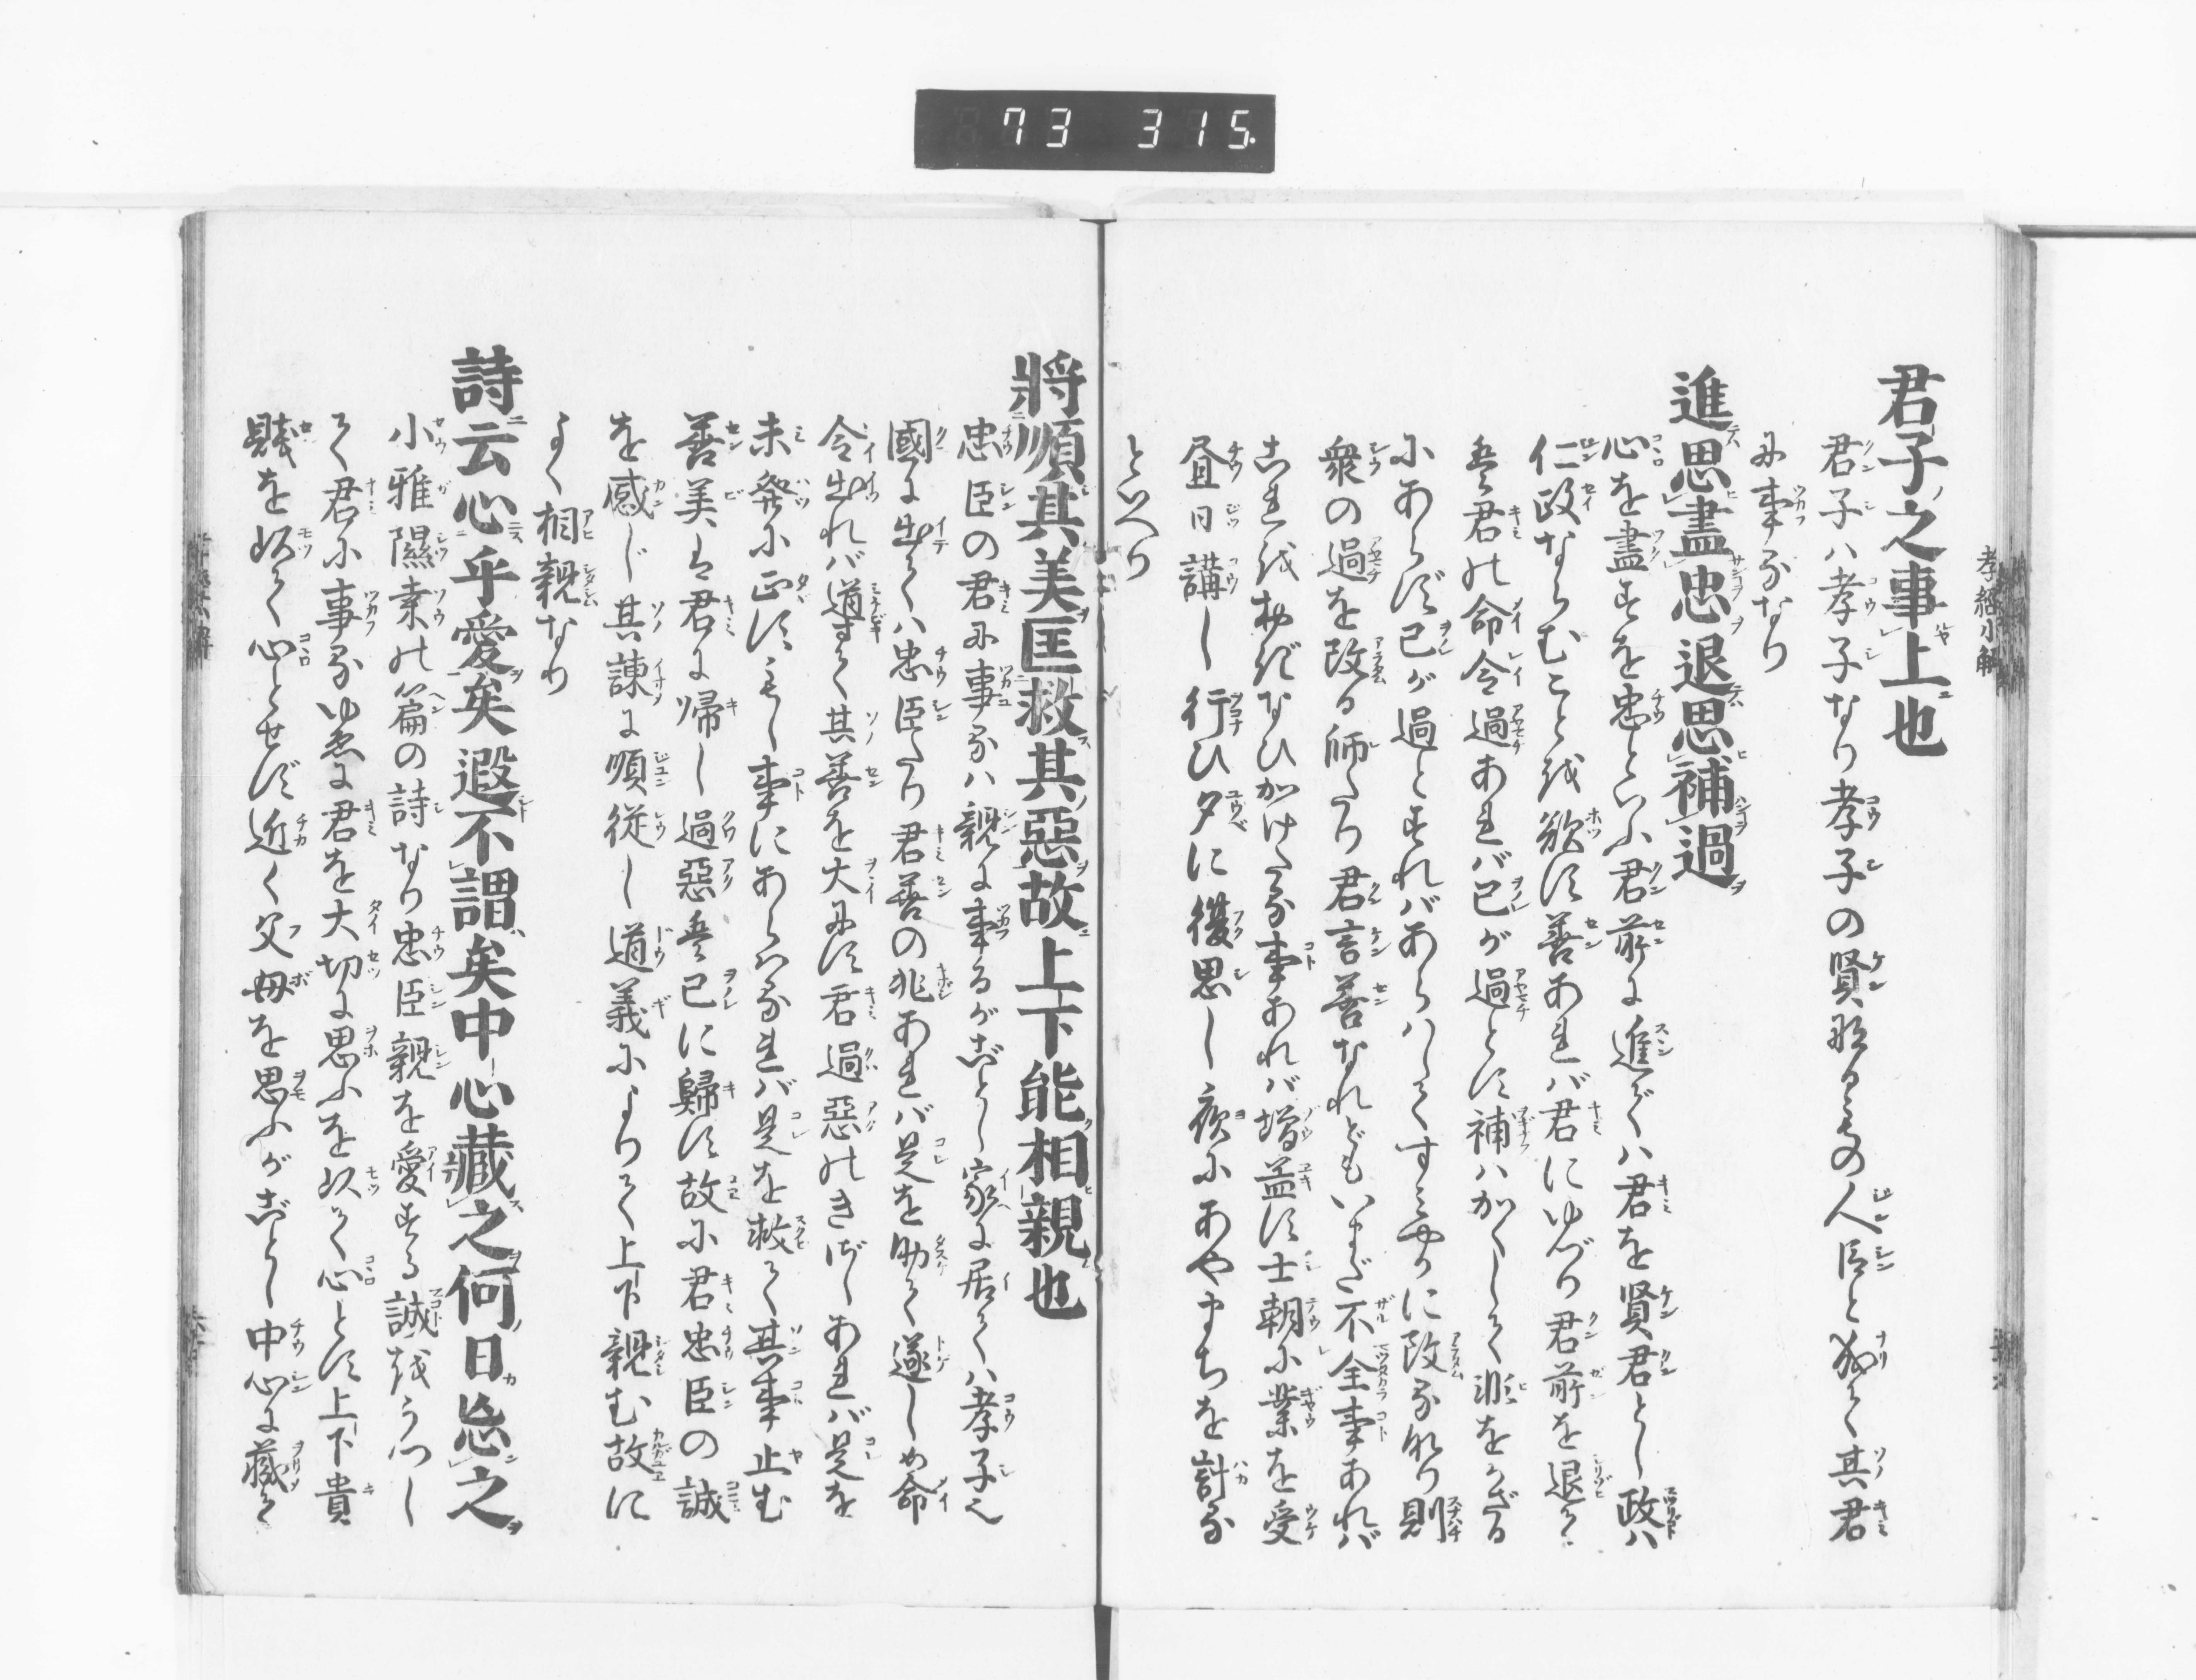 73 315.
孝経小解
君子之事上也
君子ハ孝子なり孝子の賢なるもの人臣と成て其君
に事るなり
進思盡忠退思補過
心を盡すを忠といふ君前に進でハ君を賢君とし政ハ
仁政ならむことを欲す善あれバ君にゆづり君前を退て
吾君の命令過あれバ己が過とす補ハかくして非をかざる
にあらず己が過とすれバあらハしてすミやかに改るなり則
衆の過を改る師たり君言善なれどもいまだ不全事あれバ
これをおぎなひかけたる事あれバ増益す士朝に業を受
昼日講し行ひ夕に復思し夜にあやまちを計る
といへり
將順其美匡救其惡故上下能相親也
忠臣の君に事るハ親に事るがごとし家に居てハ孝子也
國に出てハ忠臣たり君善の兆あれバ是を助て遂しめ命
令出れバ道て其善を大にす君過惡のきざしあれバ是を
未発に正すもし事にあらハるれバ是を救て其事止む
善美を君に帰し過惡吾已に歸す故に君忠臣の誠
を感じ其諫に順従し道義によりて上下親む故に
よく相親なり
詩云心乎愛矣遐不謂矣中心藏之何日忘之
小雅隰桑の篇の詩なり忠臣親を愛する誠をうつし
て君に事るゆゑに君を大切に思ふを以て心とす上下貴
賤を以て心とせず近く父母を思ふがごとし中心に藏て